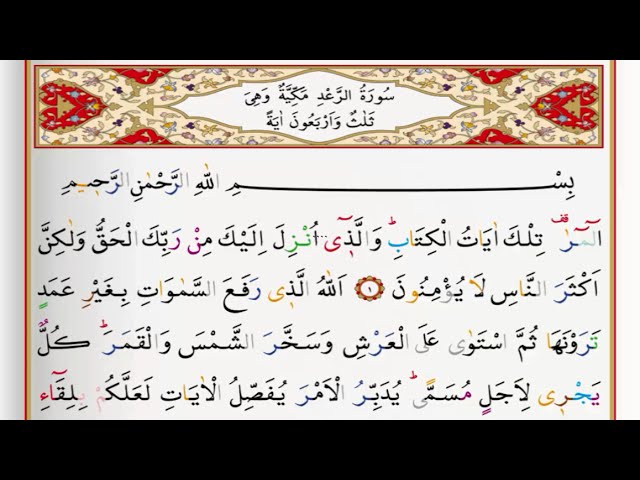 سُورَةُ الرَّعْدِ مَكِّيَّةٌ وَهِىَ
ثَلٰثٌ وَاَرْبَعُونَ اٰيَةً
بِسْمِ اللهِ الرَّحْمٰنِ الرَّحٖيمِ
الٓمٓرٰ ۠ تِلْكَ اٰيَاتُ الْكِتَابِؕ وَالَّذٖٓى اُنْزِلَ اِلَيْكَ مِنْ رَبِّكَ الْحَقُّ وَلٰكِنَّ
اَكْثَرَ النَّاسِ لَا يُؤْمِنُونَ ﴿١﴾ اَللهُ الَّذٖى رَفَعَ السَّمٰوَاتِ بِغَيْرِ عَمَدٍ
تَرَوْنَهَا ثُمَّ اسْتَوٰى عَلَى الْعَرْشِ وَسَخَّرَ الشَّمْسَ وَالْقَمَرَؕ كُلٌّ
يَجْرٖى لِاَجَلٍ مُسَمًّىؕ يُدَبِّرُ الْاَمْرَ يُفَصِّلُ الْاٰيَاتِ لَعَلَّكُمْ بِلِقَٓاءِ